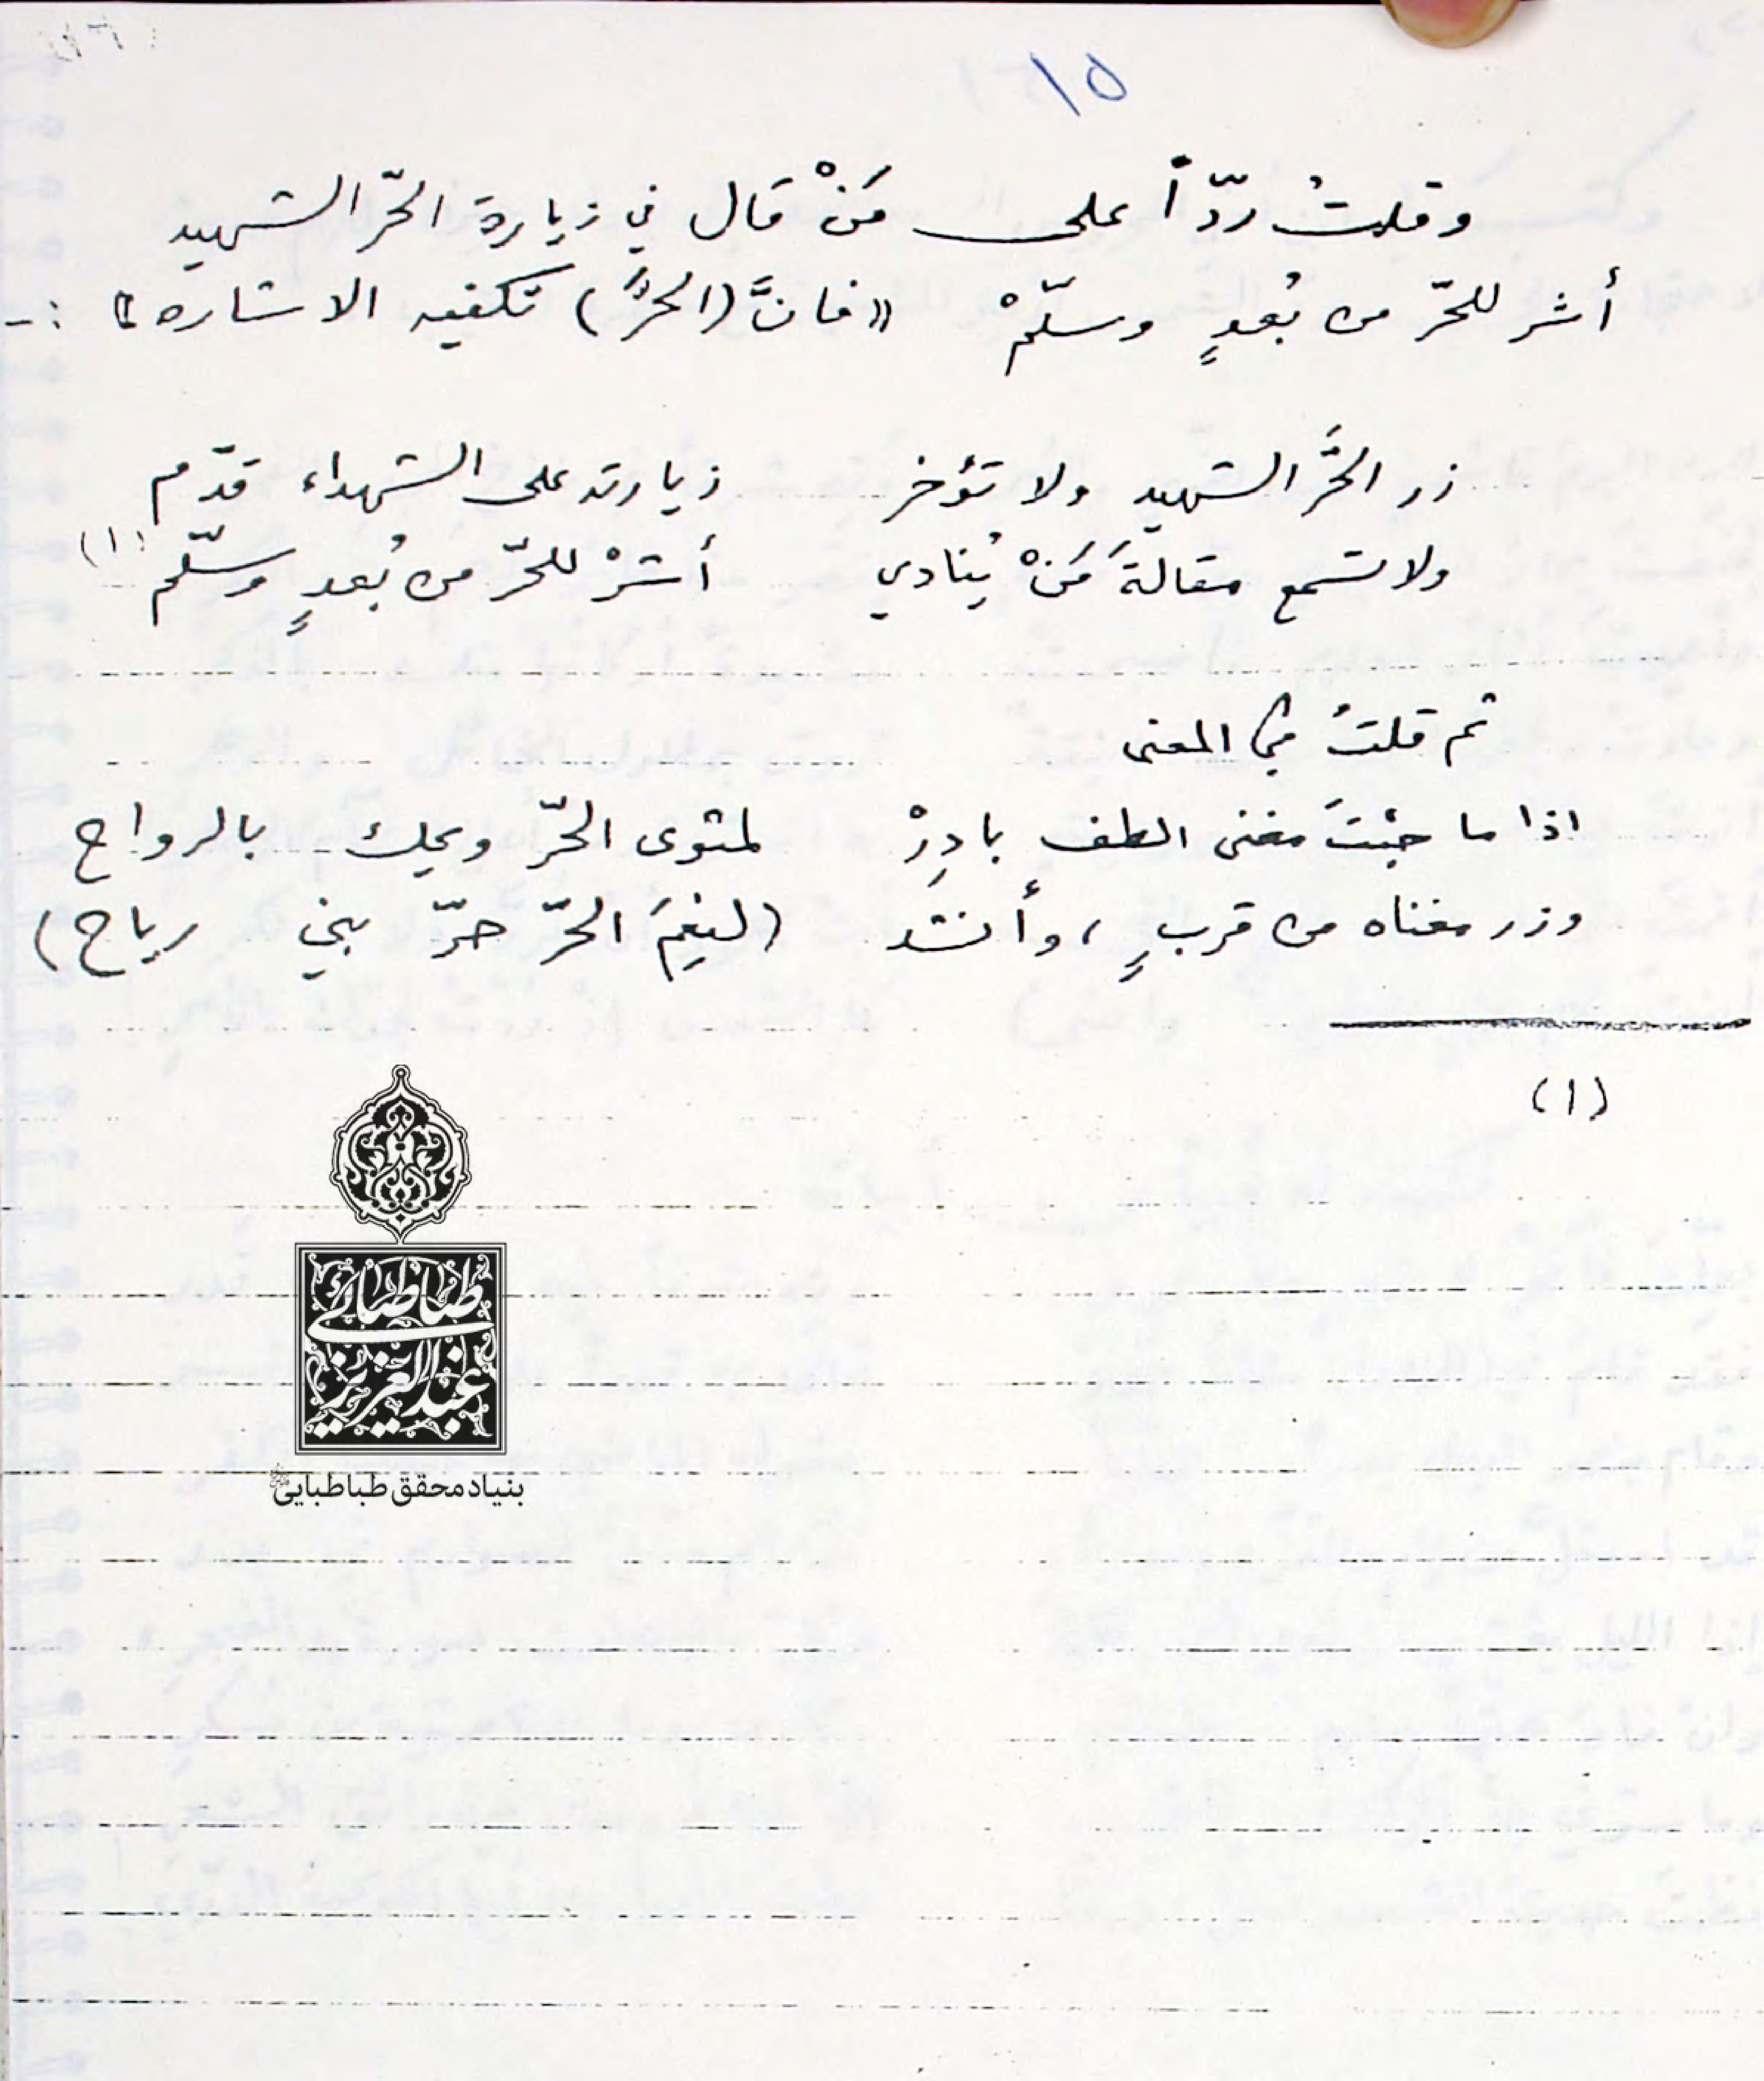 ١٥
وقلتُ ردّاً على مَنْ قال في زيارة الحّر الشهيد
أشر للحّر من بُعدٍ وسلّمْ «فانَّ (الحرَّ) تكفيه الاشاره» :-
زر الحَّر الشهيد ولا تؤخر زيارته على الشهداء قدّم
ولا تسمع مقالةَ مَنْ يُنادي أشرْ للحّر من بُعدٍ وسلّم (١)
ثم قلتُ في المعنى
اذا ما جئتَ مغنى الطف بادِرْ لمثوى الحّر ويحك بالرواح
وزر مغناه من قربٍ ، وأنشد (لنِعمَ الحّر حرّ بني رياح)
(١)
طباطبائی
عبدالعزیز
بنیاد محقق طباطبایی